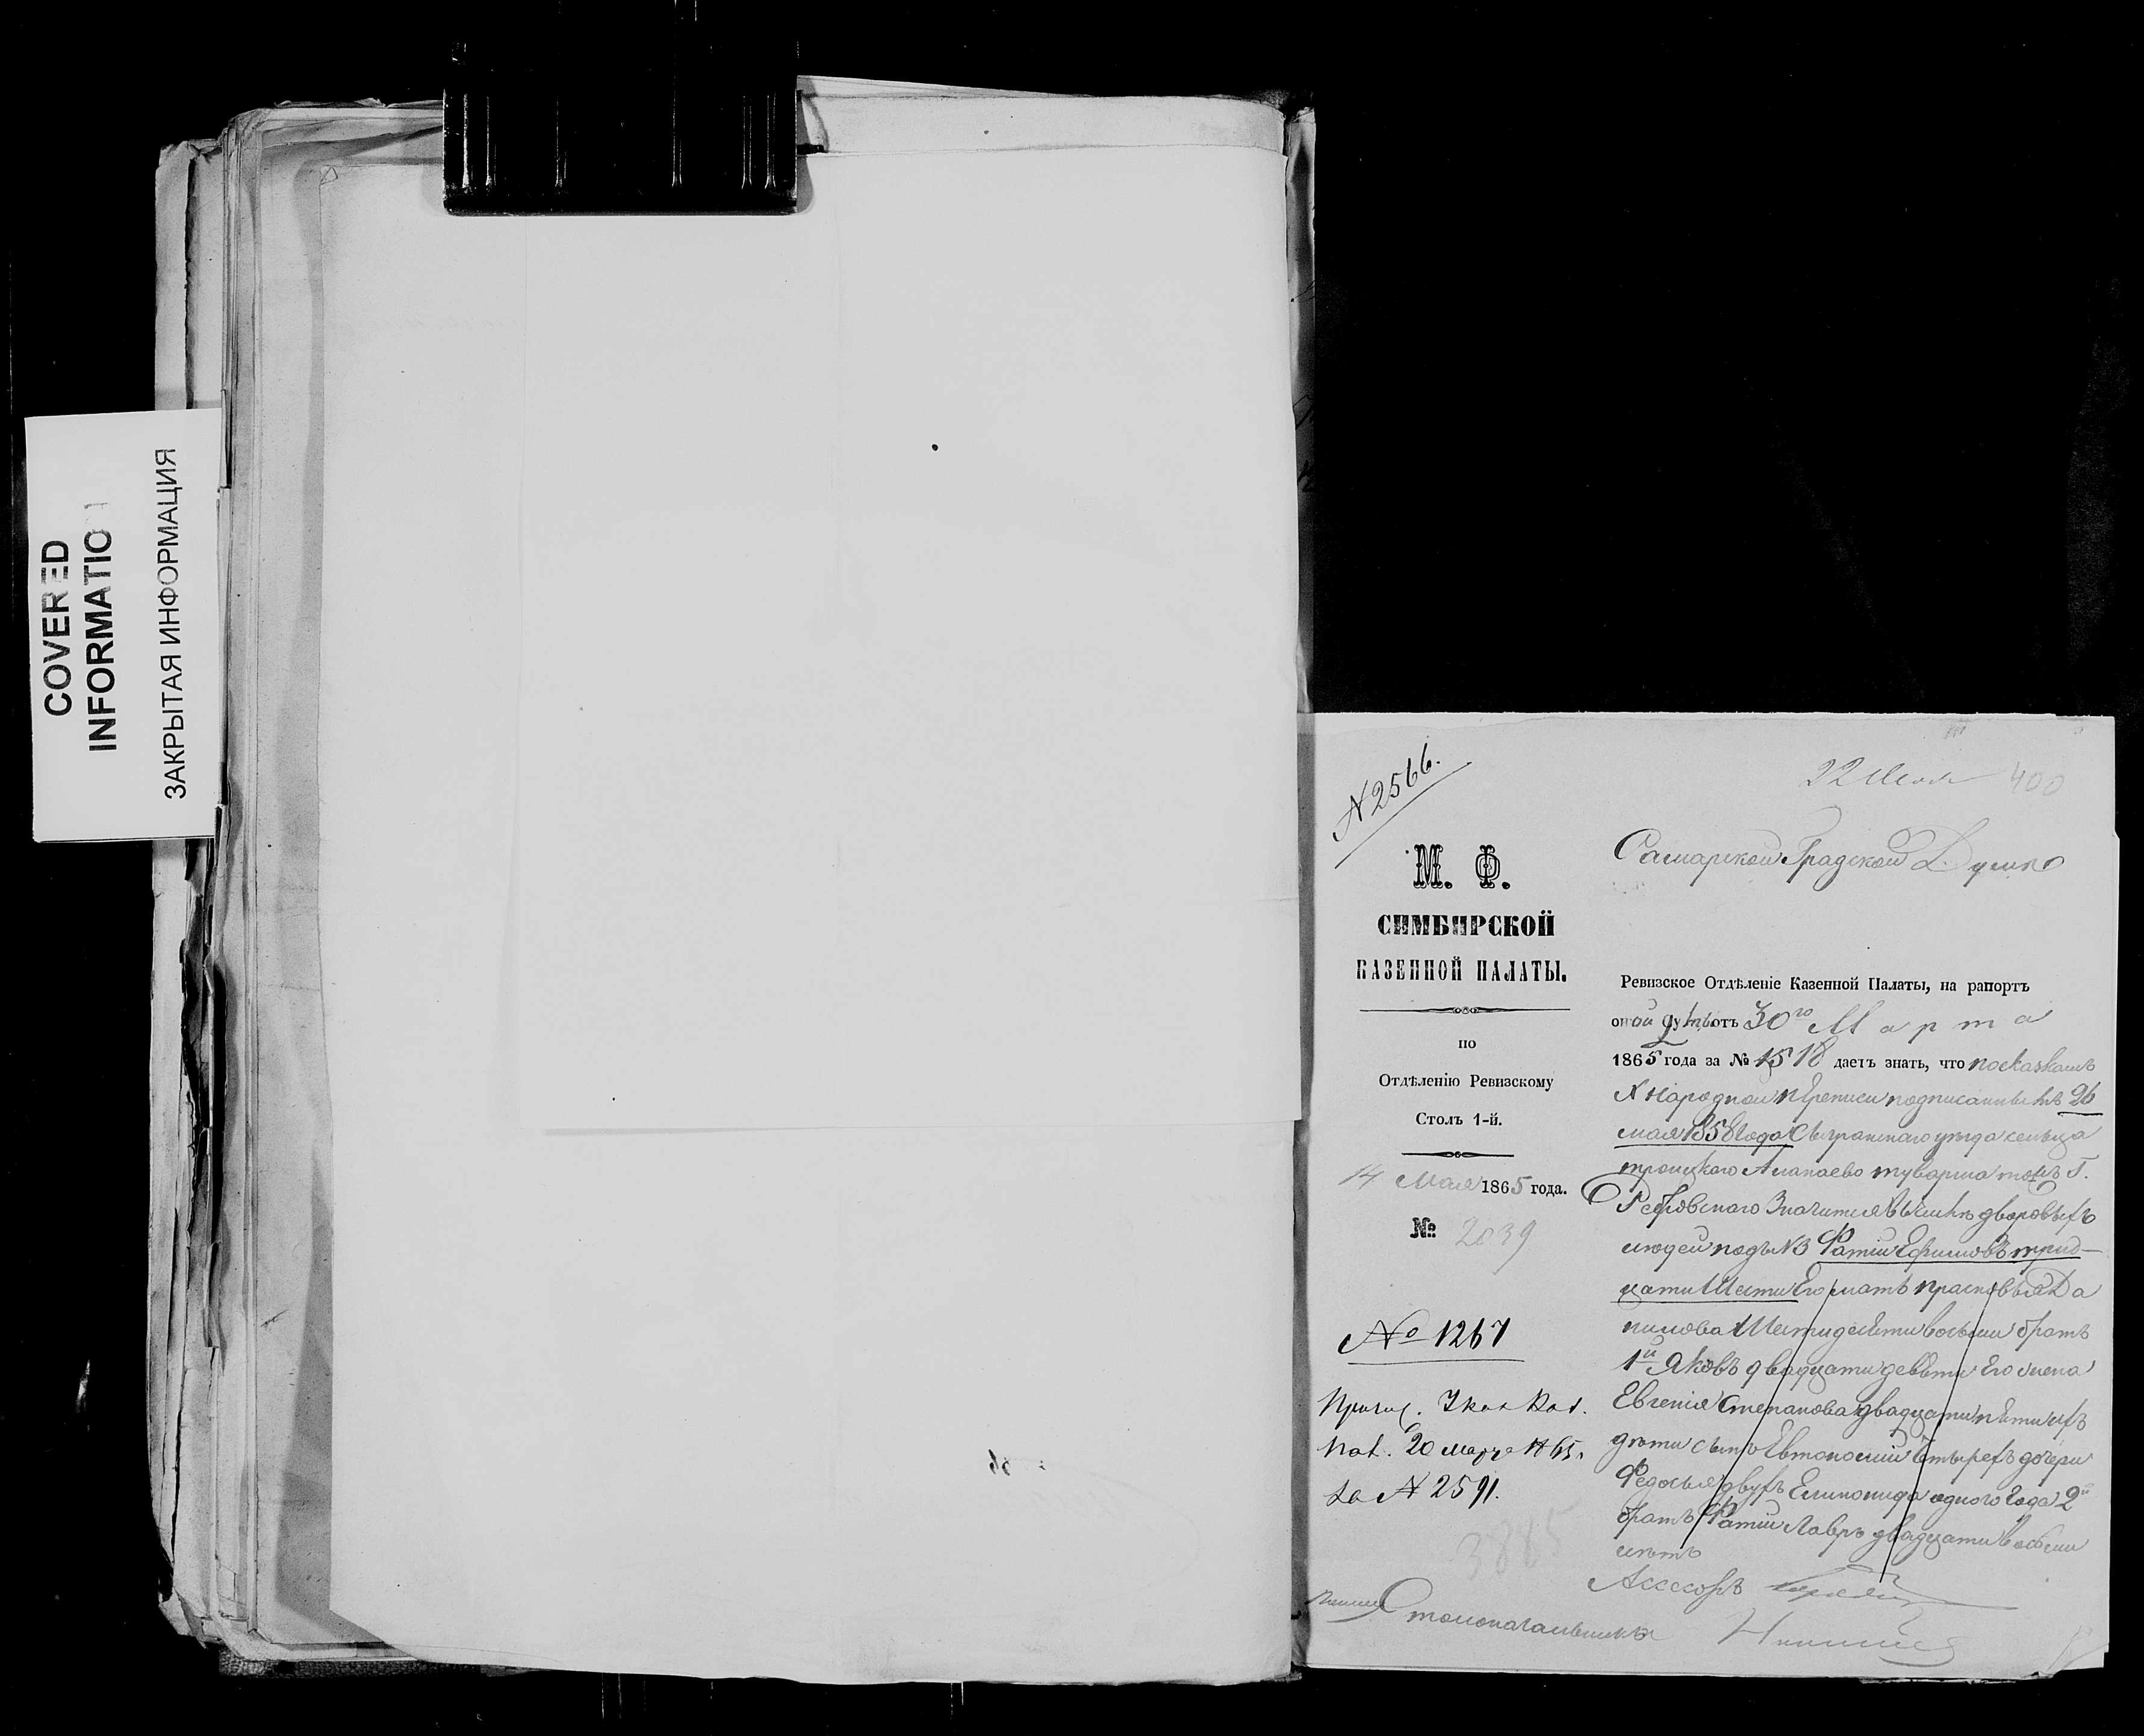 COVERED
INFORMATION
ЗАКРЫТАЯ ИНФОРМАЦИЯ
N 2566.
М. Ф.
СИМБИРСКОЙ
КАЗЕННОЙ ПАЛАТЫ.
по
Отдѣленію Ревизскому
Столъ 1-й.
14 Мая 1865 года.
№ 2039
№ 1267
20 марта 1865
за N 2591.
3885
Столоначальникъ
22 Июля 400
Самарской Градской Думѣ
Ревизское Отдѣленіе Казенной Палаты, на рапортъ
оной Думы отъ 30го Марта
1865 года за № 1518 даетъ знать, что по сказкамъ
X Народной переписи подписанныхъ 26
мая 1858 года Сызранскаго уѣзда сельца
Троицкаго
значится въ числѣ дворовыхъ
людей подъ N3 Фатій Ефимовъ трид-
цати шести Его мать Прасковья Да
нилова Шестидесяти восьми братъ
1й Яковъ двадцати девяти Его жена
Евгенія Степанова двадцати пяти ихъ
дѣти сынъ четырехъ дочери
Федосья двухъ одного года 2й
братъ Фатія Лавръ двадцати восьми
лѣтъ
Ассесоръ